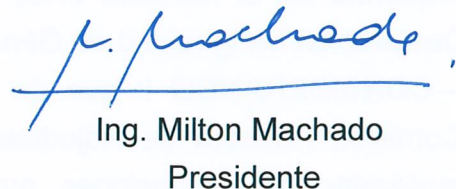 M. Machado,
Ing. Milton Machado
Presidente